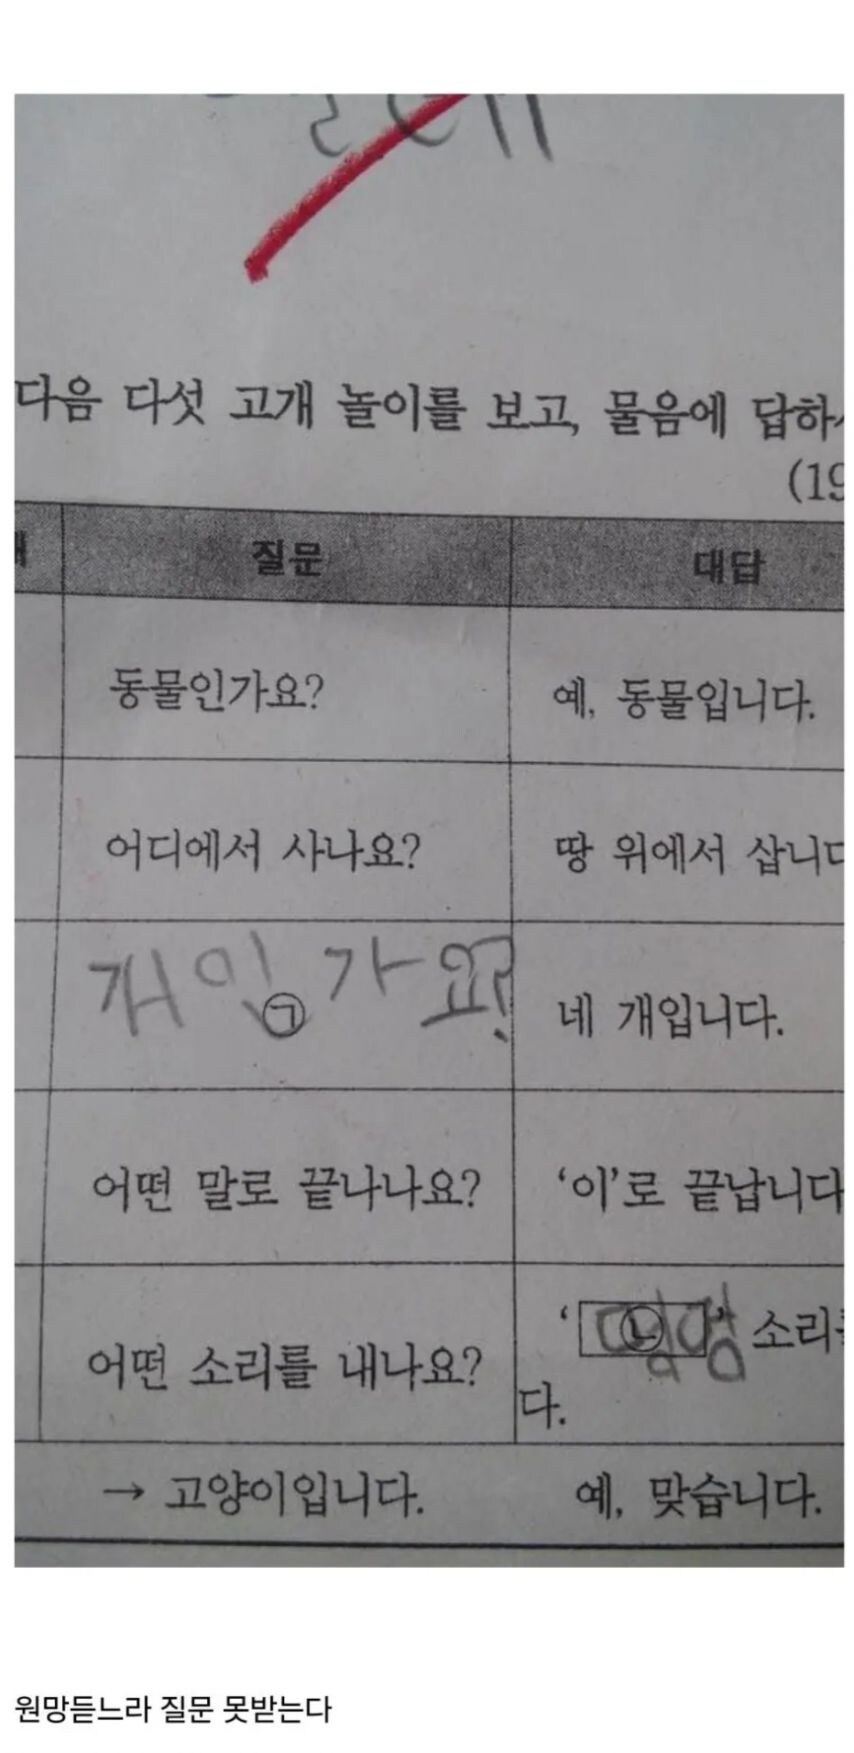 다음 다섯 고개 놀이를 보고, 물음에 답하
(19
질문 대답
동물인가요? 예, 동물입니다.
어디에서 사나요? 땅 위에서 삽니다
개인가요? ㉠ 네 개입니다.
어떤 말로 끝나나요? ‘이’로 끝납니다
어떤 소리를 내나요? ‘㉡ 멍멍’ 소리
다.
→ 고양이입니다. 예, 맞습니다.
원망듣느라 질문 못받는다